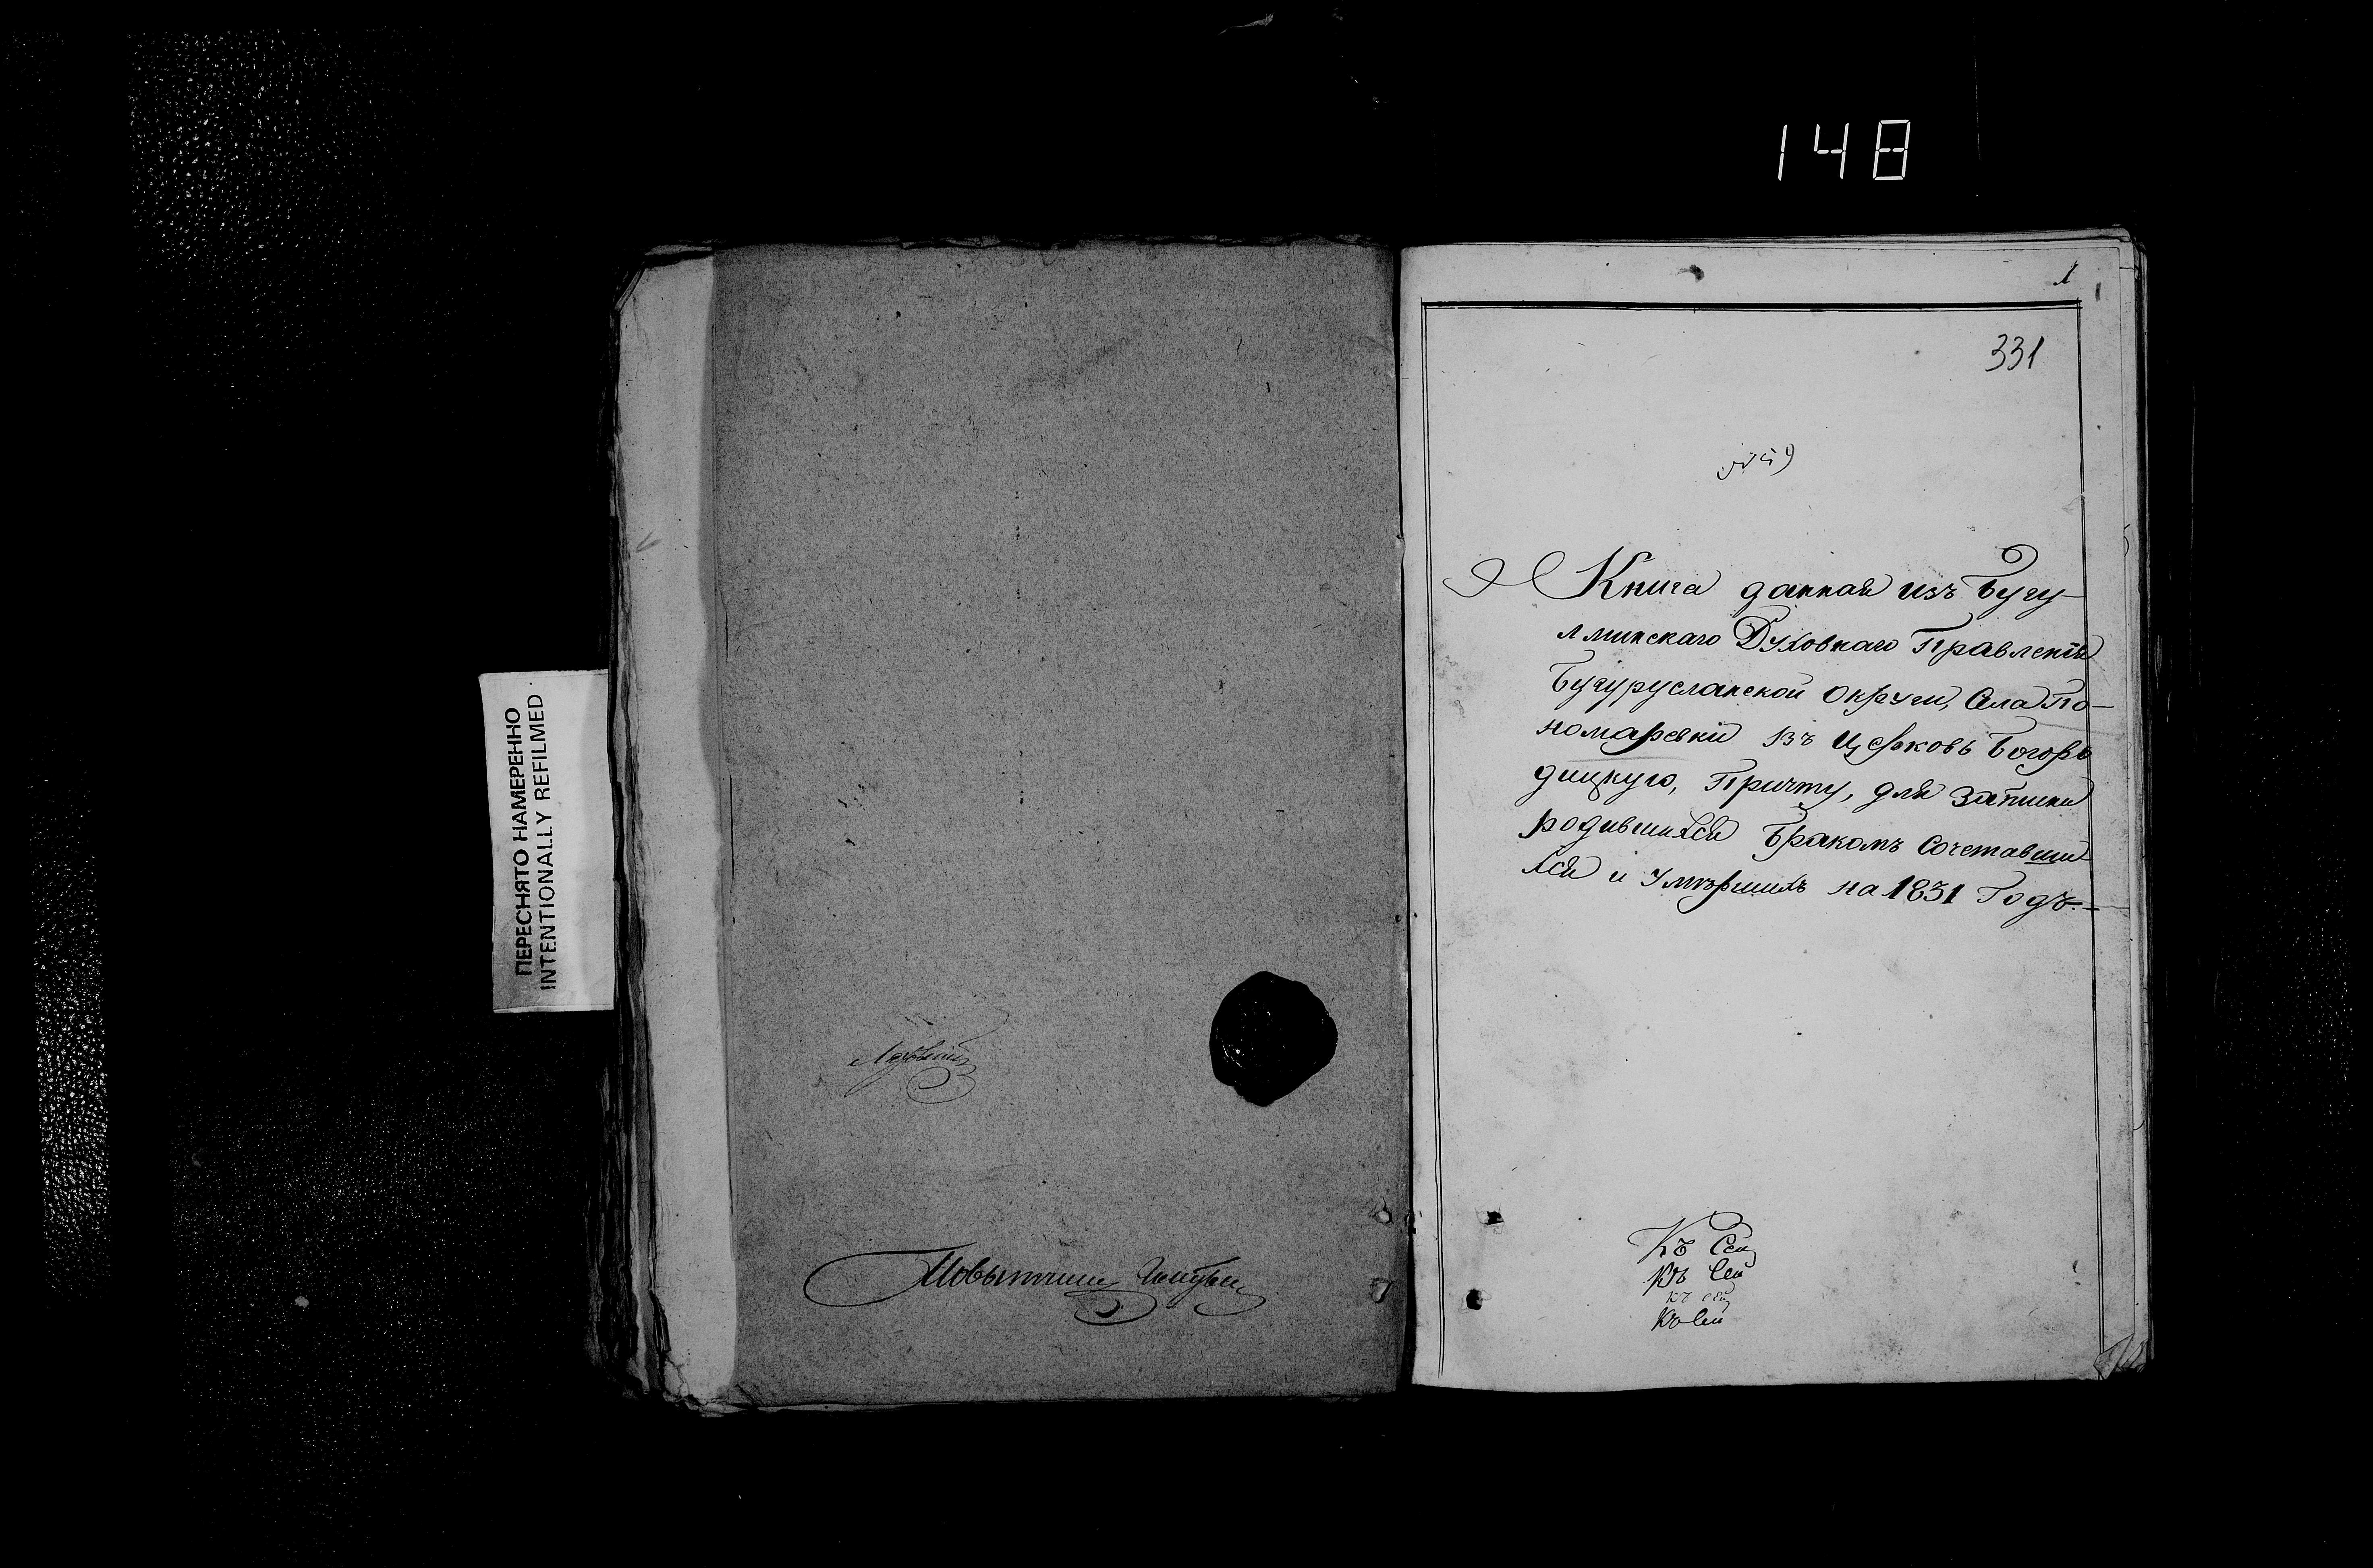 148
ПЕРЕСНЯТО НАМЕРЕННО
INTENTIONALLY REFILMED
Повытчикъ
1
331
Книга данная изъ Бугу-
лминскаго Духовнаго Правленїя
Бугурусланской округи, Села По-
номаревки въ Церковь Богоро
дицкую, Причту, для записки
родившихся Бракомъ Сочетавши
хся и Умѣршихъ на 1831 Годъ.
Къ Сей
Къ Сей
къ сей
Къ Сей